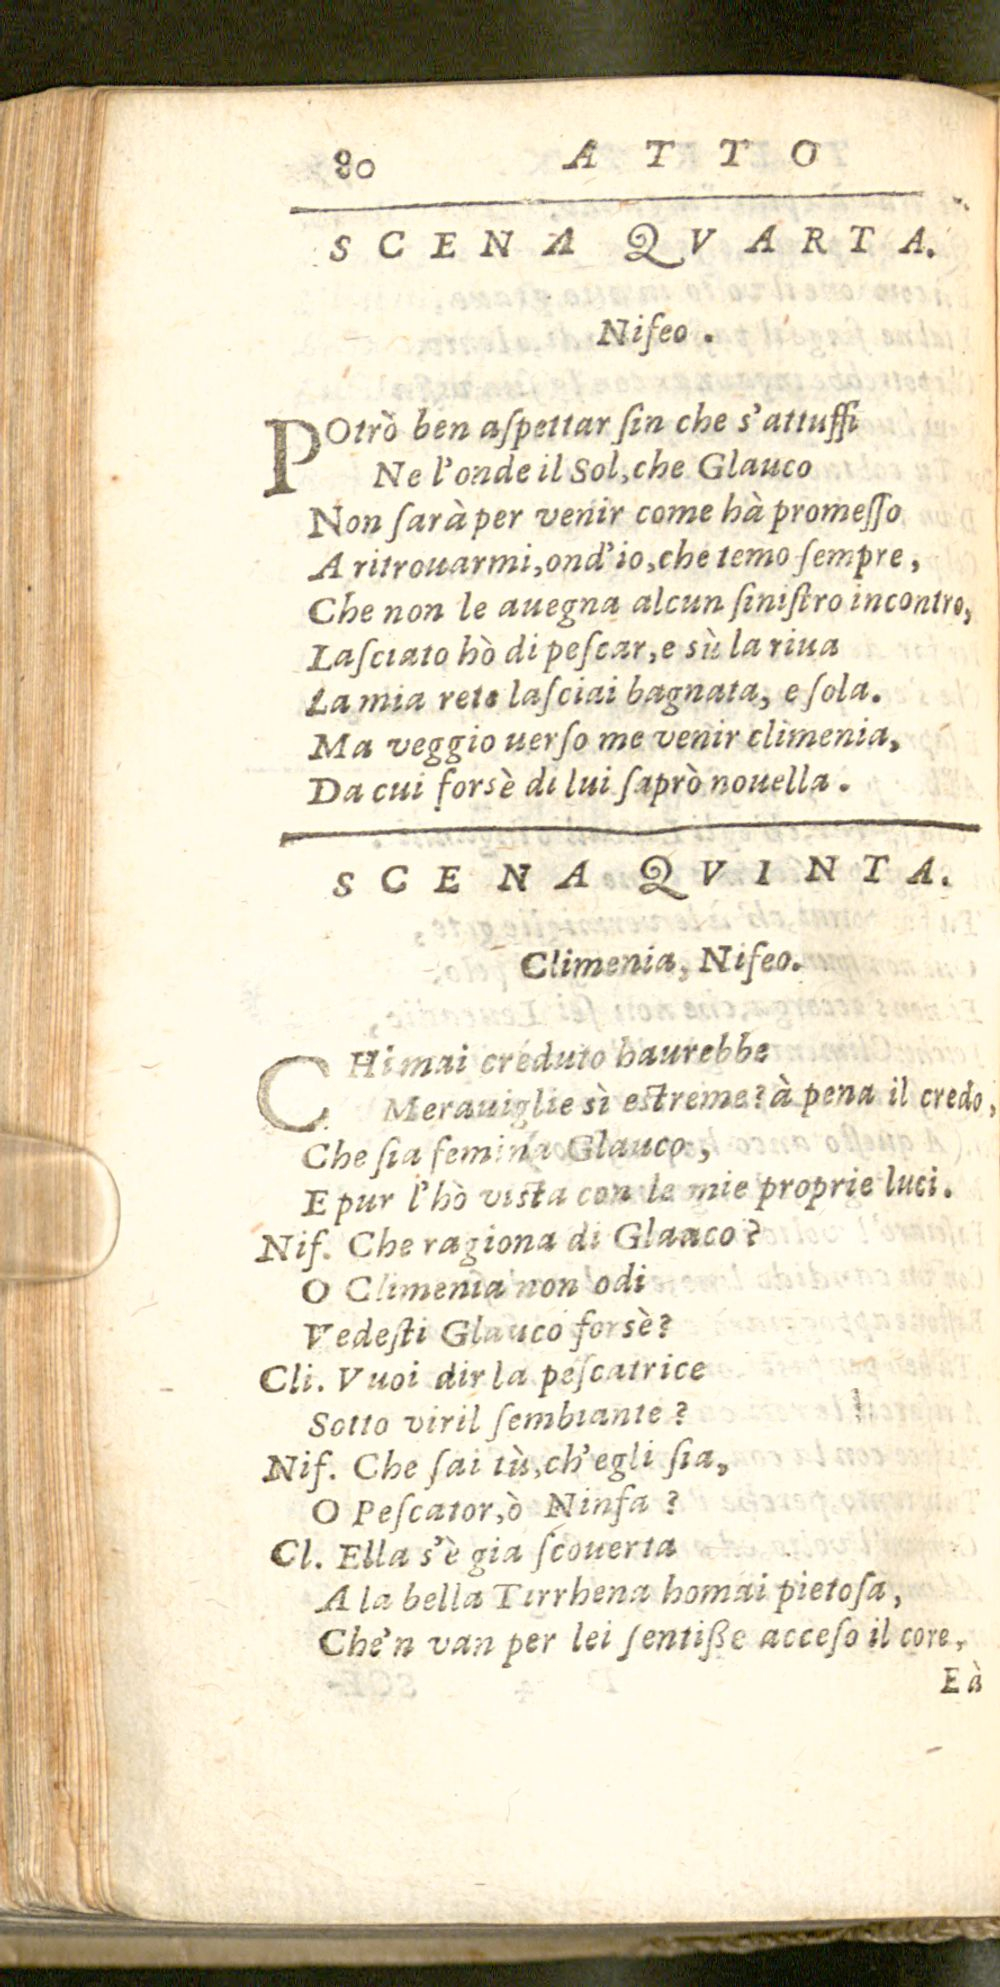 80 ATTO
SCENA QVARTA.
Niſeo.
POtrò ben aſpettar ſin che s'attuffi
Ne l'onde il Sol, che Glauco
Non ſarà per venir come hà promeſſo
A ritrouarmi, ond'io, che temo ſempre,
Che non le auegna alcun ſiniſtro incontro,
Laſciato hò di peſcar, e sù la riua
La mia rete laſciai bagnata, e ſola.
Ma veggio uerſo me venir climenia,
Da cui forsè di lui ſaprò nouella.
SCENA QVINTA.
Climenia, Niſeo.
CHi mai creduto haurebbe
Merauiglie sì estreme? à pena il credo,
Che ſia femina Glauco,
E pur l'hò vista con le mie proprie luci.
Niſ. Che ragiona di Glauco?
O Climenia non odi
Vedeſti Glauco forsè?
Cli. Vuoi dir la peſcatrice
Sotto viril ſembiante?
Niſ. Che ſai tù, ch'egli ſia,
O Peſcator, ò Ninfa?
Cl. Ella s'è gia ſcouerta
A la bella Tirrhena homai pietoſa,
Che'n van per lei ſentiße acceſo il core,
E à